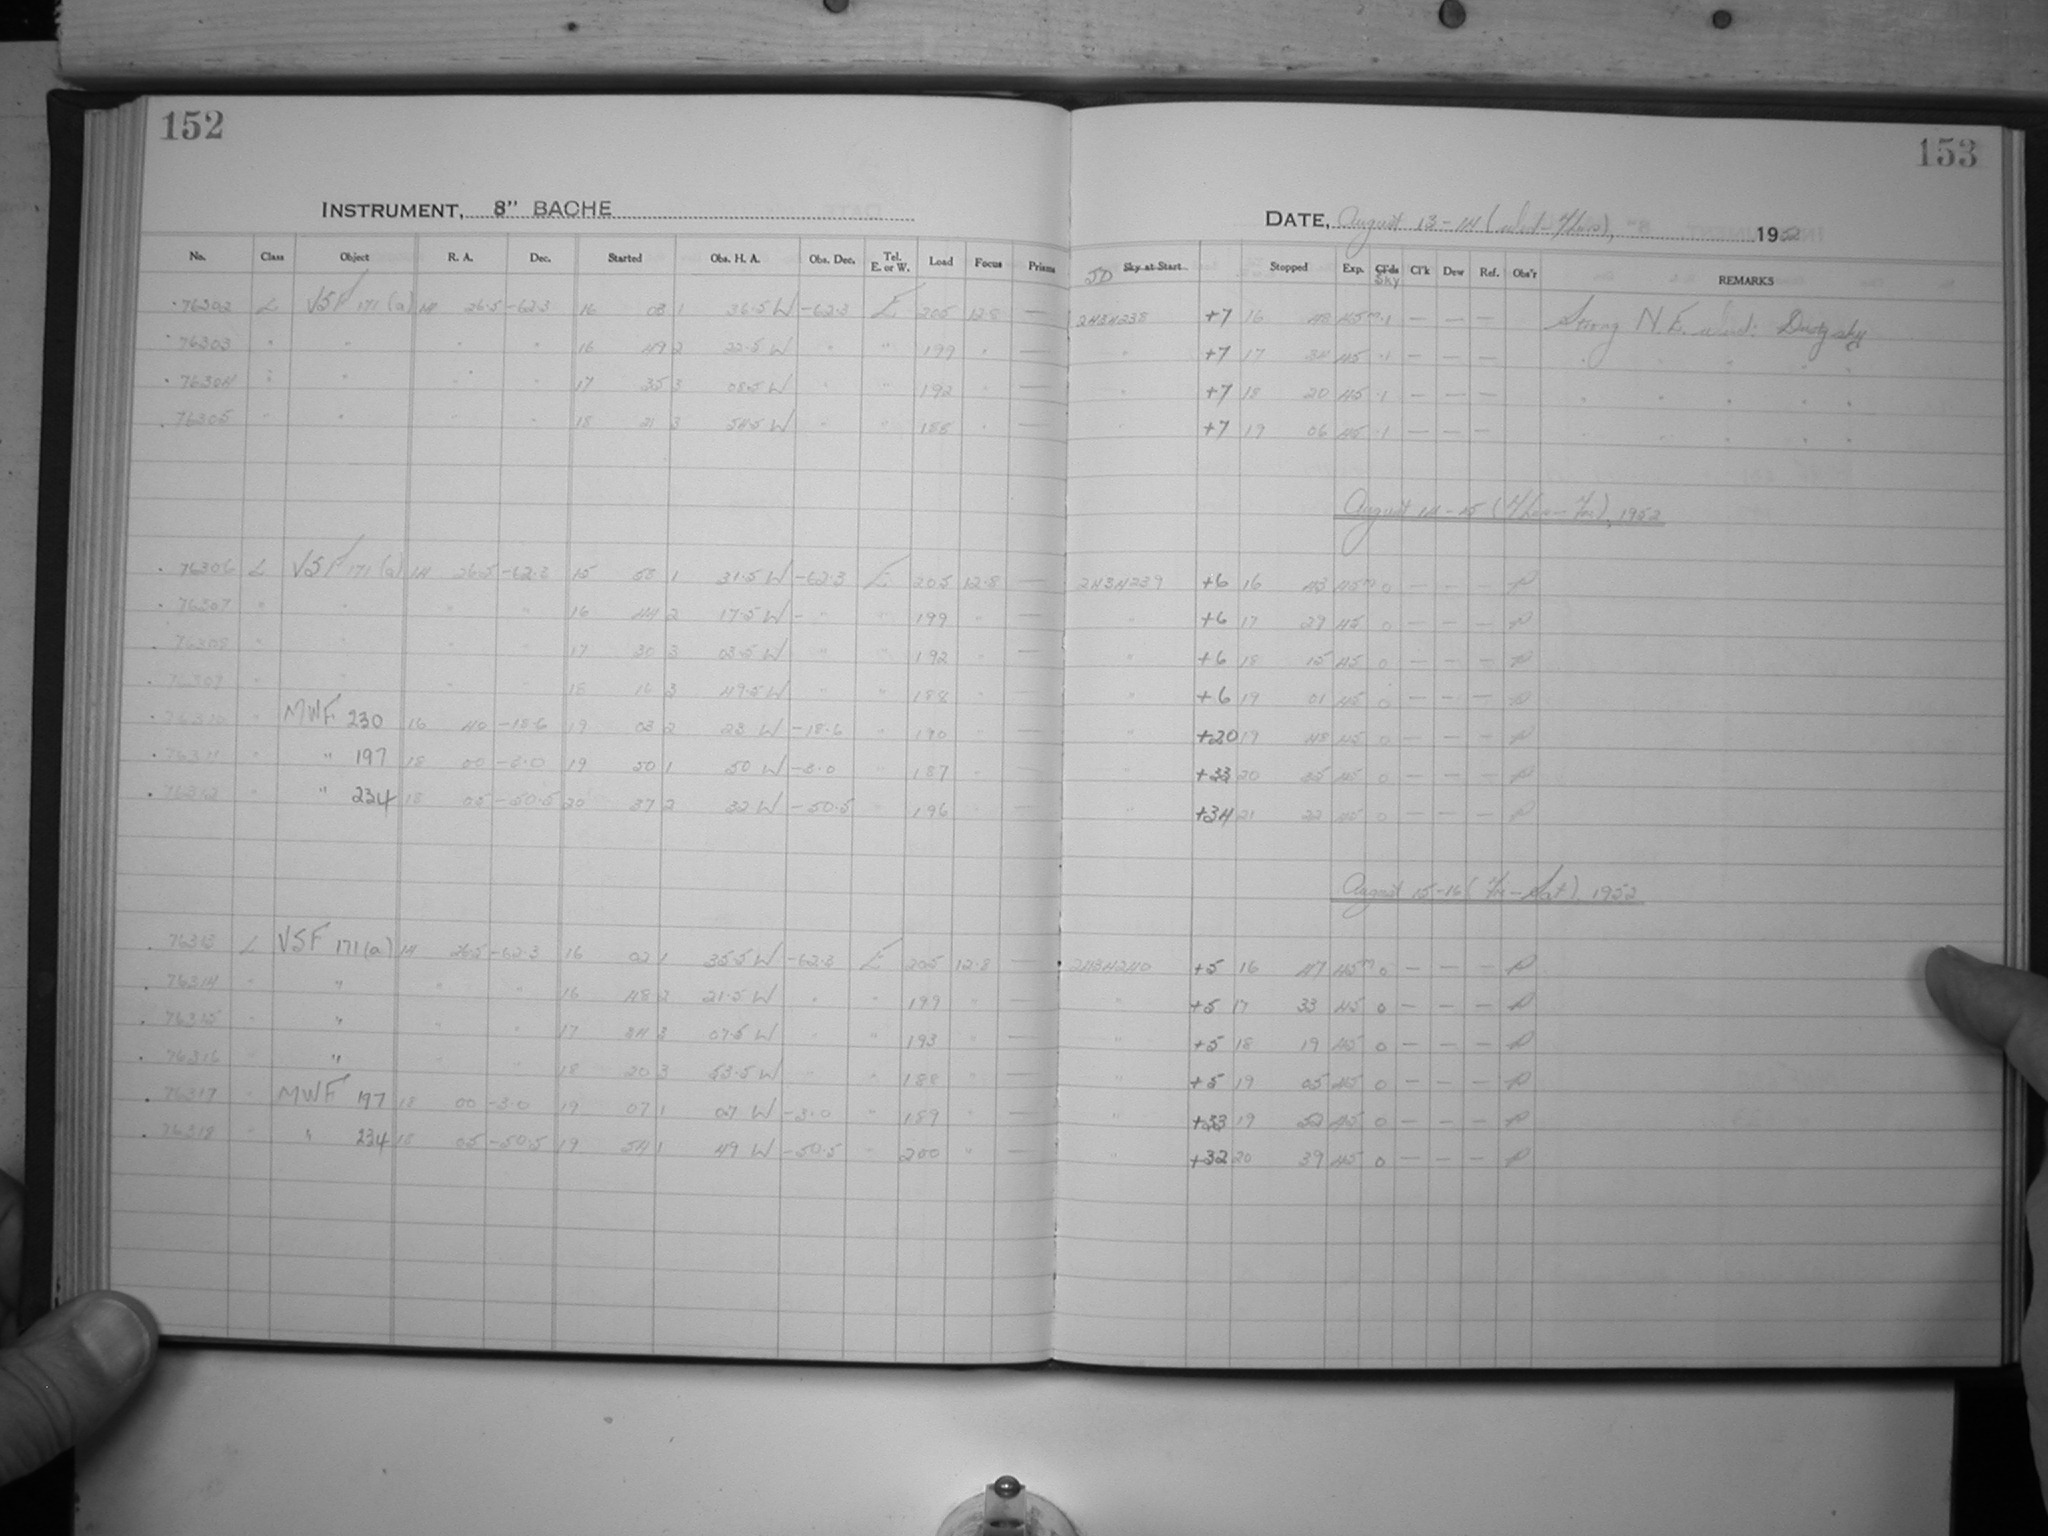 152
153
INSTRUMENT, 8" BACHE
DATE, August 13-14 ( ), 1952
No. Class Object R. A. Dec. Started Obs. H. A. Obs. Dec. Tel. E. or W. Load Focus Prisms JD Sky at Start Stopped Exp. Cl'ds Sky Cl'k Dew Ref. Obs'r REMARKS
76302 L VSF 171(a) 14 26.5 -62.3 16 03 1 36.5 W -62.3 E 205 12.8 — 2434238 +7 16 48 45m .1 — — — Strong N.E. wind: Dusty sky
76303 " " " " 16 49 2 22.5 W " " 199 " — " +7 17 34 45 .1 — — — " " " " "
76304 " " " " 17 35 3 08.5 W " " 192 " — " +7 18 20 45 .1 — — — " " " " "
76305 " " " " 18 21 3 54.5 W " " 188 " — " +7 19 06 45 .1 — — — " " " " "
August 14-15 (Thur-Fri), 1952
76306 L VSF 171(a) 14 26.5 -62.3 15 58 1 31.5 W -62.3 E 205 12.8 — 2434239 +6 16 43 45m 0 — — —
76307 " " " " 16 44 2 17.5 W " " 199 " — " +6 17 29 45 0 — — —
76308 " " " " 17 30 3 03.5 W " " 192 " — " +6 18 15 45 0 — — —
76309 " " " " 18 16 3 49.5 W " " 188 " — " +6 19 01 45 0 — — —
76310 " MWF 230 16 40 -18.6 19 03 2 23 W -18.6 " 190 " — " +20 19 48 45 0 — — —
76311 " " 197 18 00 -3.0 19 50 1 50 W -3.0 " 187 " — " +33 20 35 45 0 — — —
76312 " " 234 18 05 -50.5 20 37 2 32 W -50.5 " 196 " — " +34 21 22 45 0 — — —
August 15-16 (Fri-Sat), 1952
76313 L VSF 171(a) 14 26.5 -62.3 16 02 1 35.5 W -62.3 E 205 12.8 — 2434240 +5 16 47 45m 0 — — —
76314 " " " " 16 48 2 21.5 W " " 199 " — " +5 17 33 45 0 — — —
76315 " " " " 17 34 3 07.5 W " " 193 " — " +5 18 19 45 0 — — —
76316 " " " " 18 20 3 53.5 W " " 188 " — " +5 19 05 45 0 — — —
76317 " MWF 197 18 00 -3.0 19 07 1 07 W -3.0 " 189 " — " +33 19 52 45 0 — — —
76318 " " 234 18 05 -50.5 19 54 1 49 W -50.5 " 200 " — " +32 20 39 45 0 — — —